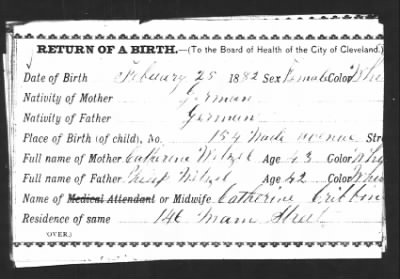 RETURN OF A BIRTH.—(To the Board of Health of the City of Cleveland.)
Date of Birth February 25 1882 Sex Female Color Whi
Nativity of Mother German
Nativity of Father German
Place of Birth (of child), No. 154 Wade avenue Stre
Full name of Mother Catharine Witzel Age 43 Color Whi
Full name of Father Witzel Age 42 Color Whi
Name of Medical Attendant or Midwife Catherine Cribbin
Residence of same 146 Main Street
(OVER.)